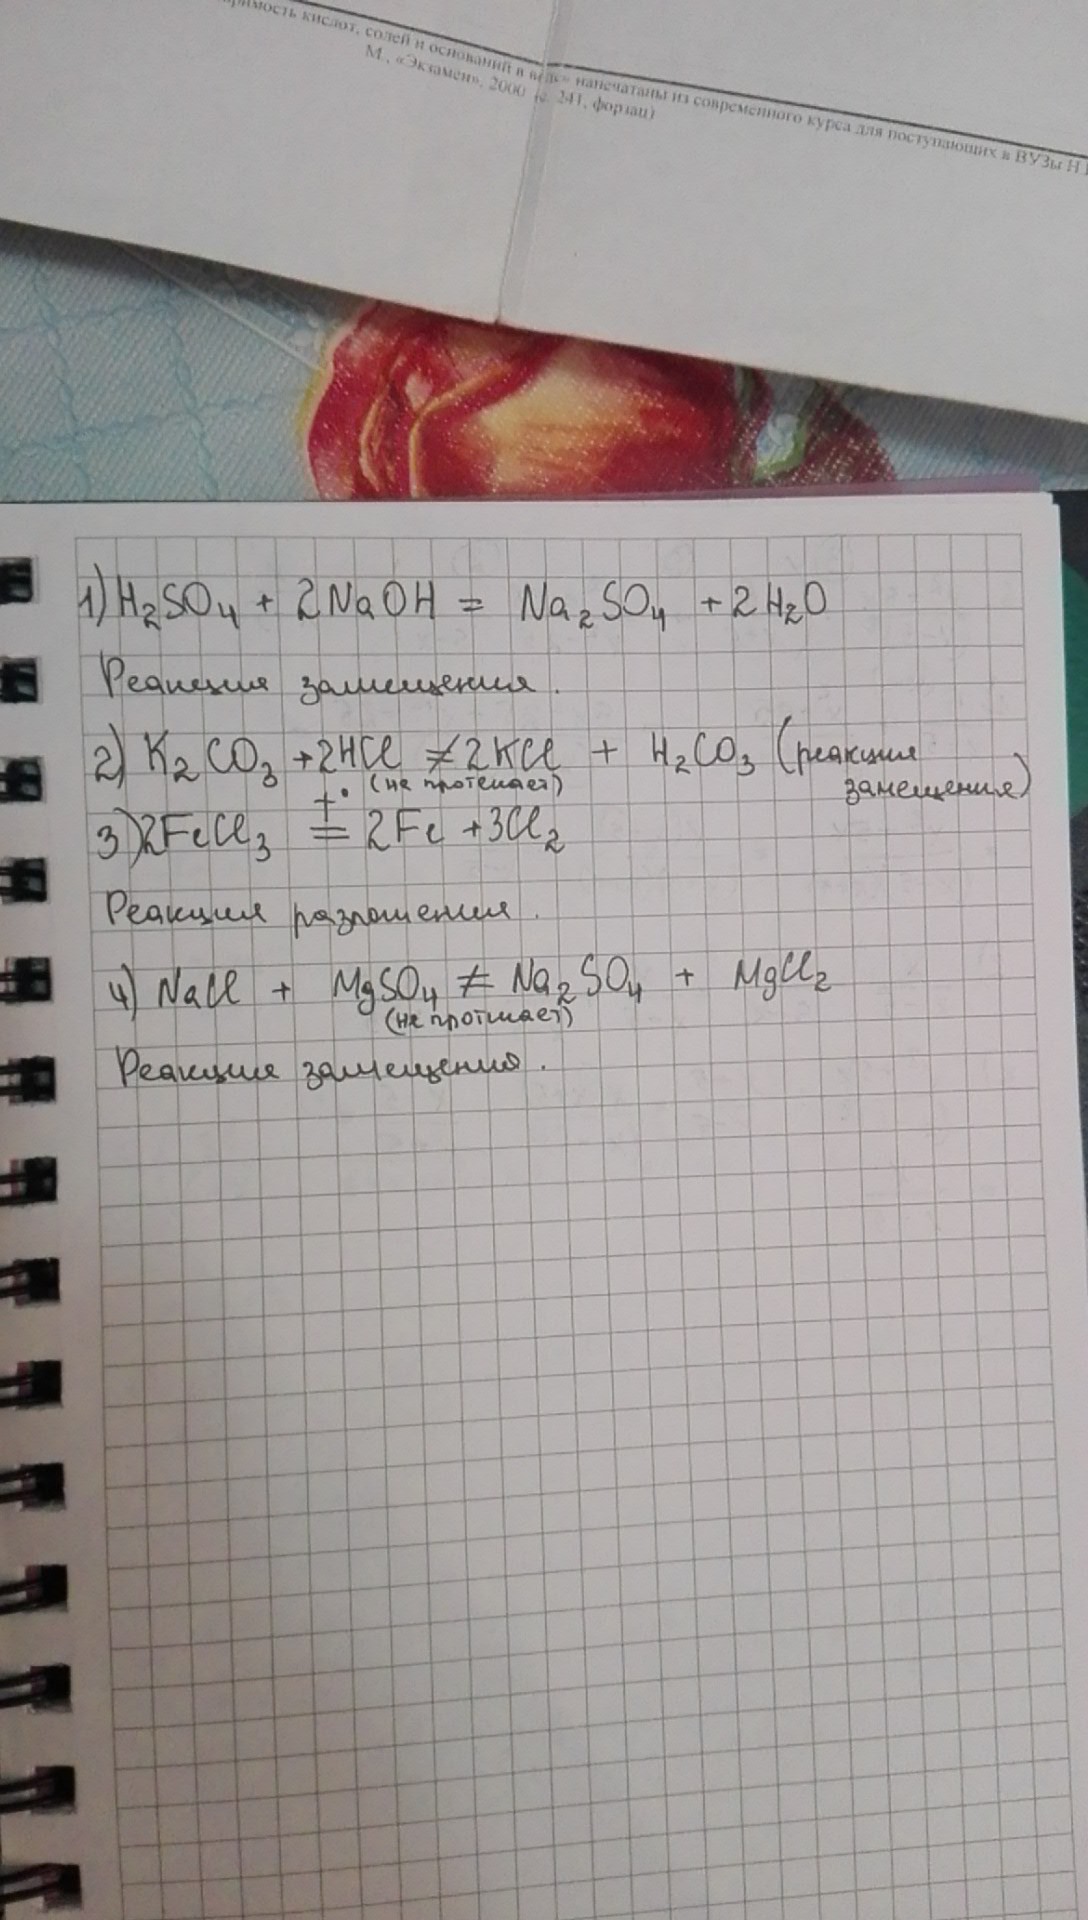 римость кислот, солей и оснований в воде» напечатаны из современного курса для поступающих в ВУЗы Н.
М., «Экзамен», 2000 (с. 241, форзац)
1) H₂SO₄ + 2NaOH = Na₂SO₄ + 2H₂O
Реакция замещения.
2) K₂CO₃ + 2HCl ≠ 2KCl + H₂CO₃ (реакция
(не протекает) замещения)
t°
3) 2FeCl₃ = 2Fe + 3Cl₂
Реакция разложения.
4) NaCl + MgSO₄ ≠ Na₂SO₄ + MgCl₂
(не протикает)
Реакция замещения.